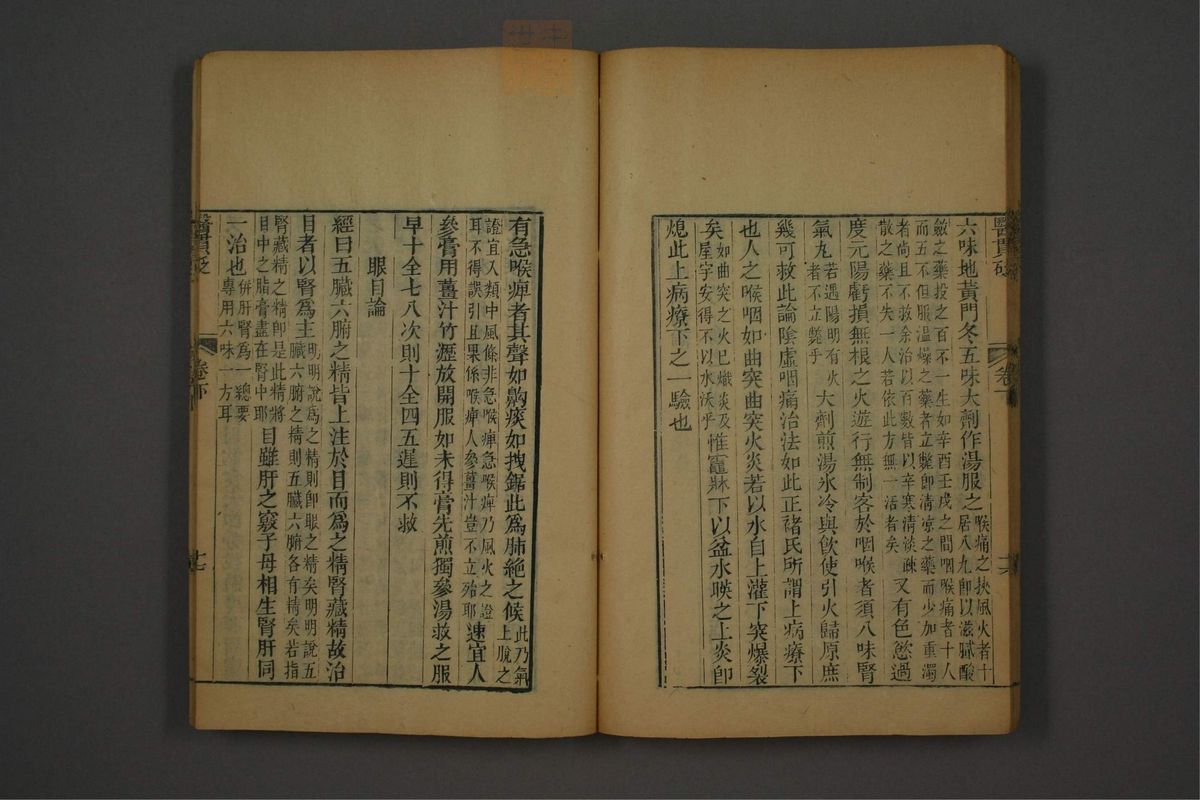 醫貫砭
卷下
六味地黃門冬五味大劑作湯服之喉痛之挾風火者十居八九卽以滋膩酸
斂之藥投之百不一生如辛酉壬戌之間咽喉痛者十人而五不但服溫燥之藥者立斃卽清凉之藥而少加重濁
者尚且不救余治以百數皆以辛寒清淡疎散之藥不失一人若依此方無一活者矣又有色慾過
度元陽虧損無根之火遊行無制客於咽喉者須八味腎
氣丸若遇陽明有火者不立斃乎大劑煎湯氷冷與飮使引火歸原庶
幾可救此論陰虛咽痛治法如此正禇氏所謂上病療下
也人之喉咽如曲突曲突火炎若以水自上灌下突爆裂
矣如曲突之火已熾炎及屋宇安得不以水沃乎惟竈牀下以盆水映之上炎卽
熄此上病療下之一驗也
有急喉痺者其聲如鼾痰如拽鋸此爲肺絶之候此乃氣上脫之
證宜入類中風條非急喉痺急喉痺乃風火之證耳不得誤引且果係喉痺人參薑汁豈不立殆耶速宜人
參膏用薑汁竹瀝放開服如未得膏先煎獨參湯救之服
早十全七八次則十全四五遲則不救
眼目論
經曰五臟六腑之精皆上注於目而爲之精腎藏精故治
目者以腎爲主明明說爲之精則卽眼之精矣明明說五臟六腑之精則五臟六腑各有精矣若指
腎藏精之精卽是此精將目中之脂膏盡在腎中耶目雖肝之竅子母相生腎肝同
一治也併肝腎爲一總要專用六味一方耳
醫貫砭
卷下
七